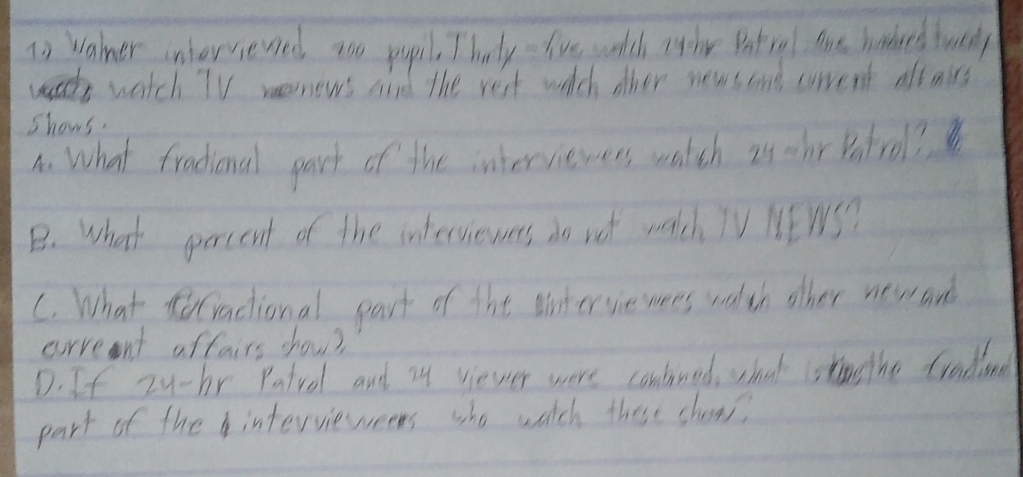 1.) Walner interviewed 200 pupil. Thirty-five watch 24-hr Patrol. One hundred twenty
watch TV news and the rest watch other news and current affairs
Shows.
A. What fractional part of the interviewees watch 24-hr Patrol?
B. What percent of the interviewees do not watch TV NEWS?
C. What fractional part of the interviewees watch other new and
current affairs show?
D. If 24-hr Patrol and 24 viewer were combined, what is the fractional
part of the interviewees who watch these show?